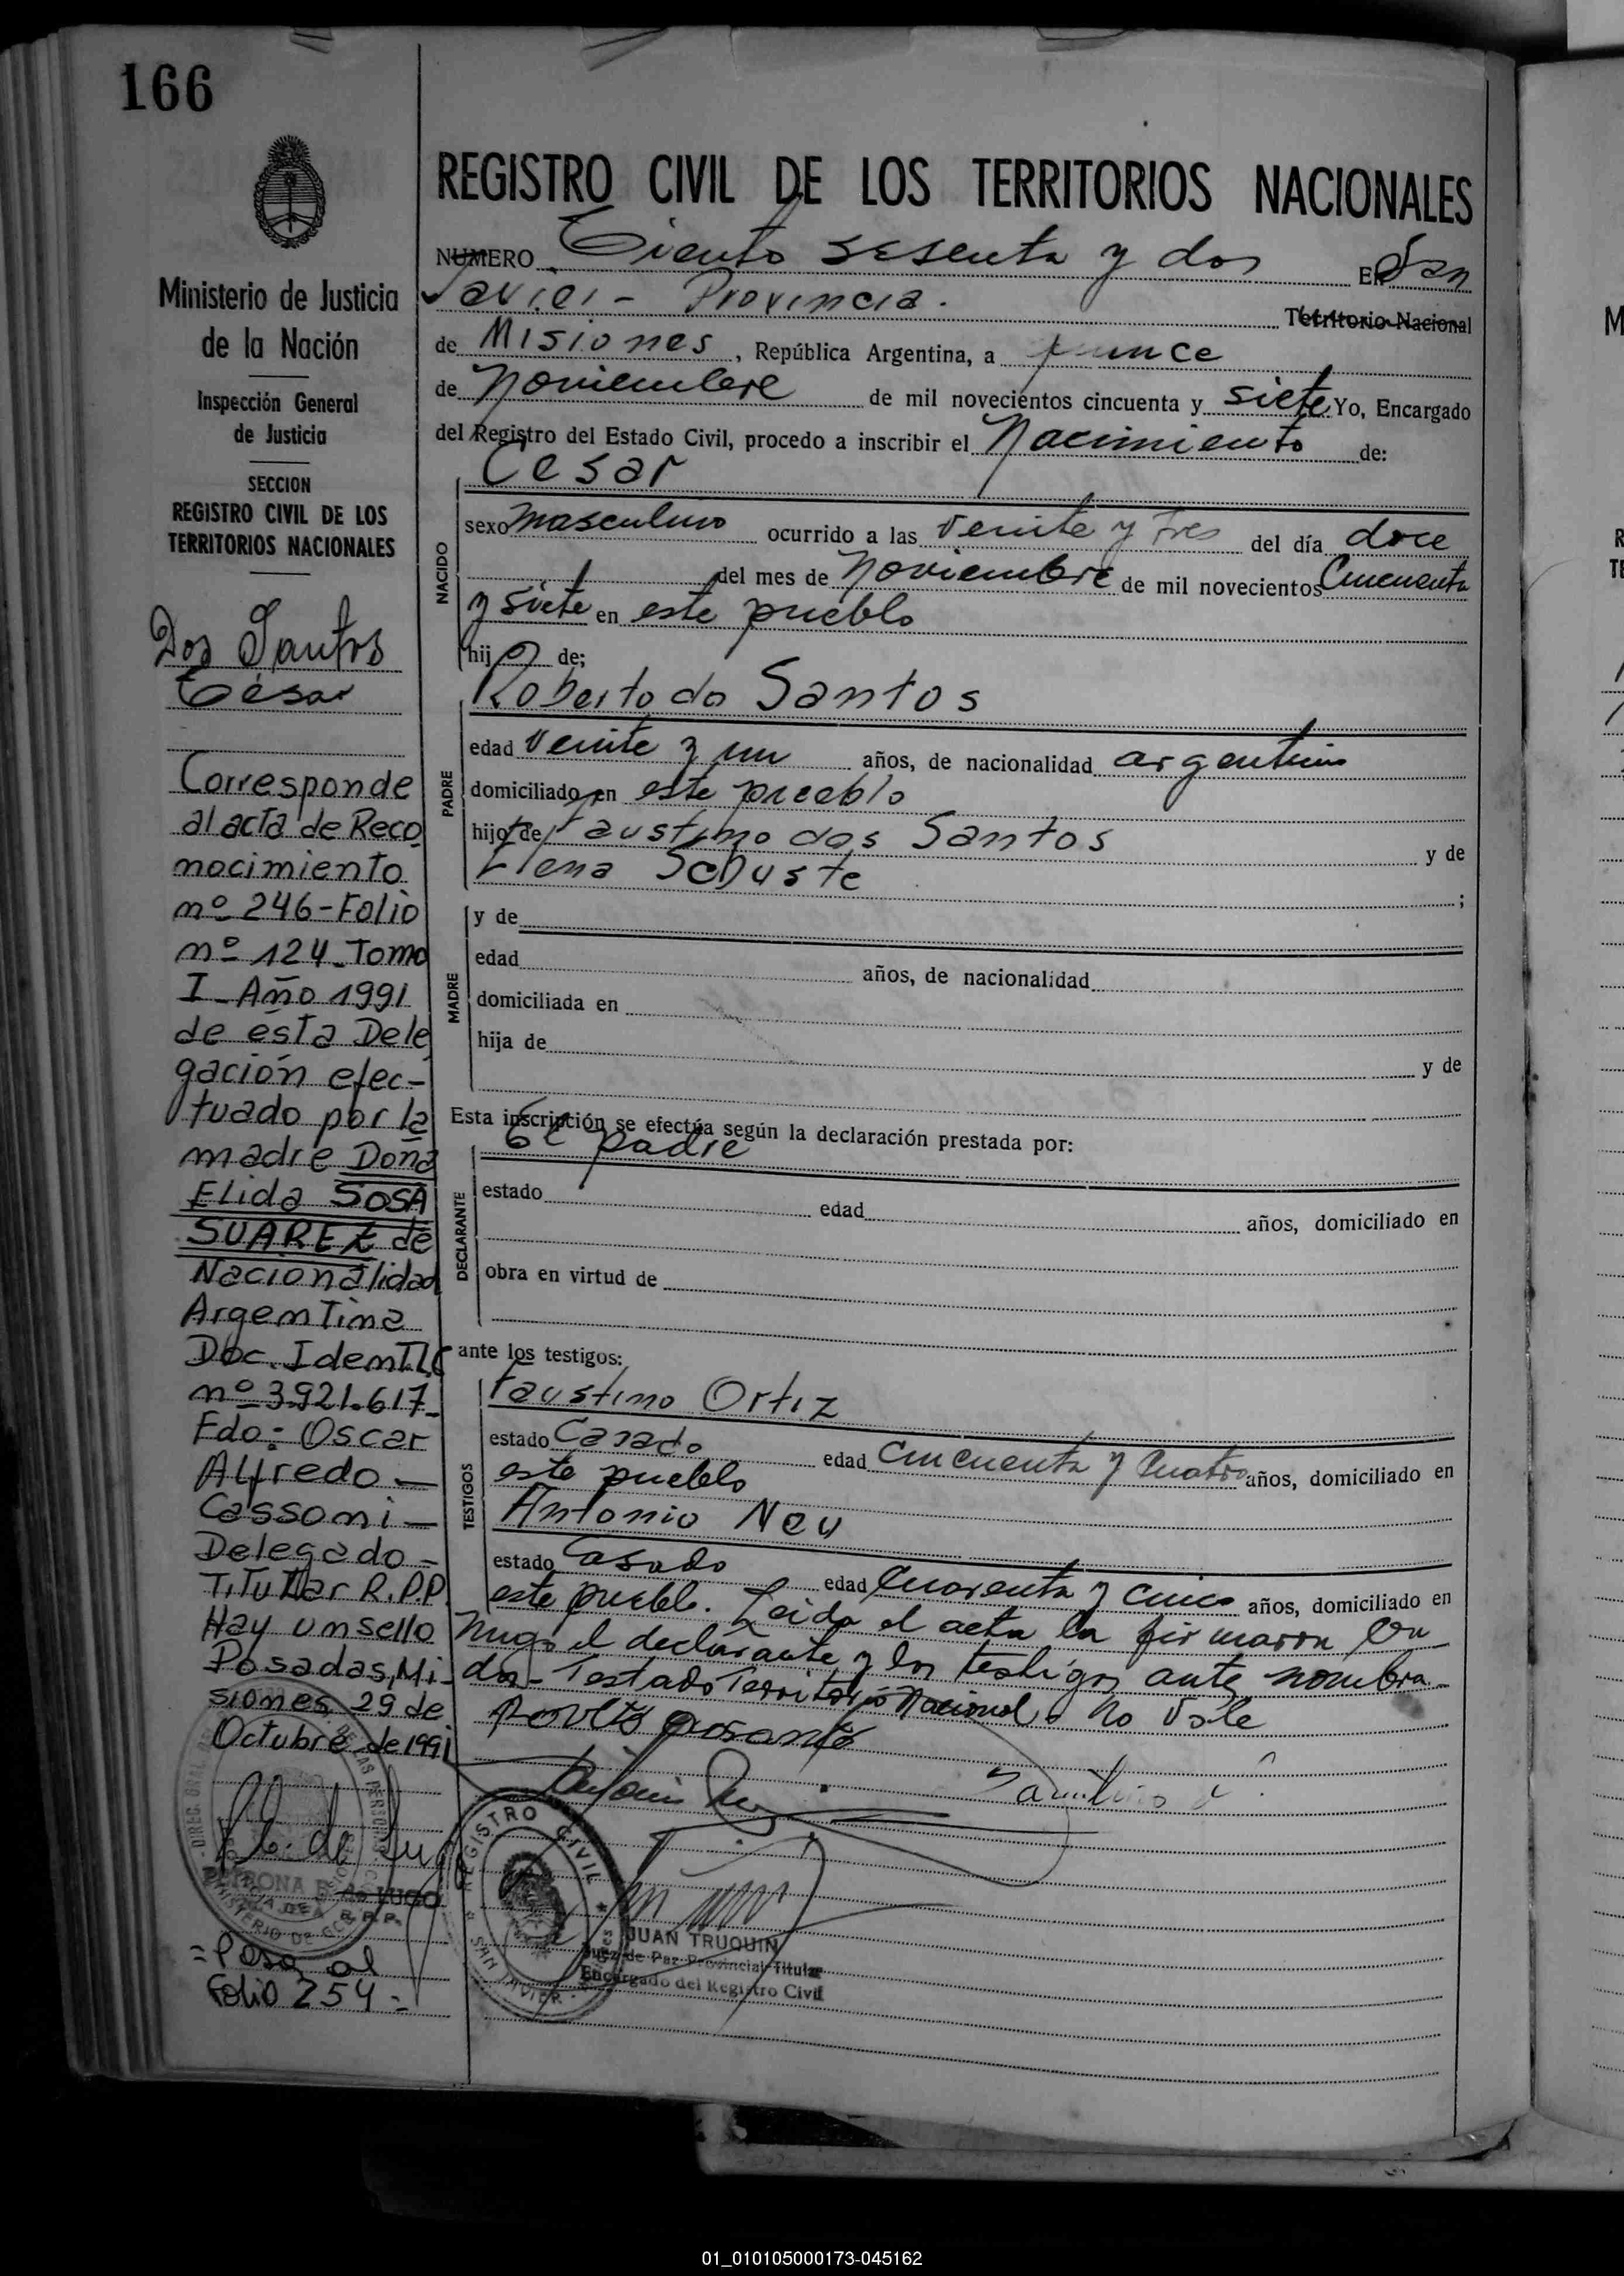 166
Ministerio de Justicia
de la Nación
Inspección General
de Justicia
SECCION
REGISTRO CIVIL DE LOS
TERRITORIOS NACIONALES
Dos Santos
César
Corresponde
al acta de Reco
nocimiento
nº 246-Folio
nº 124-Tomo
I-Año 1991
de ésta Dele
gación efec-
tuado por la
madre Doña
Elida SOSA
SUAREZ de
Nacionalidad
Argentina
Doc. Identi.
nº 3.921.617-
Fdo: Oscar
Alfredo -
Cassoni -
Delegado -
Titular R.P.P.
Hay un sello
Posadas, Mi-
siones, 29 de
Octubre de 1991
de LUGO
R.P.P.
= Pasa al
Folio 254 =
REGISTRO CIVIL DE LOS TERRITORIOS NACIONALES
NUMERO Ciento sesenta y dos EN San
Javier - Provincia. Territorio Nacional
de Misiones, República Argentina, a quince
de Noviembre de mil novecientos cincuenta y siete Yo, Encargado
del Registro del Estado Civil, procedo a inscribir el Nacimiento de:
Cesar
NACIDO
sexo masculino ocurrido a las veinte y tres del día doce
del mes de Noviembre de mil novecientos Cincuenta
y siete en este pueblo
hijo de;
PADRE
Roberto do Santos
edad veinte y un años, de nacionalidad argentino
domiciliado en este pueblo
hijo de Faustino dos Santos y de
Elena ;
MADRE
y de
edad años, de nacionalidad
domiciliada en
hija de y de
Esta inscripción se efectúa según la declaración prestada por:
DECLARANTE
El padre
estado edad años, domiciliado en
obra en virtud de
ante los testigos:
TESTIGOS
Faustino Ortiz
estado Casado edad Cincuenta y Cuatro años, domiciliado en
este pueblo
Antonio Neu
estado Casado edad Cuarenta y cinco años, domiciliado en
este pueblo. Leida el acta la firmaron Con
migo el declarante y los testigos ante nombra
dos - Testado Territorio Nacional: No Vale
REGISTRO CIVIL
SAN JAVIER
JUAN TRUQUIN
Juez de Paz Provincial Titular
Encargado del Registro Civil
01_010105000173-045162